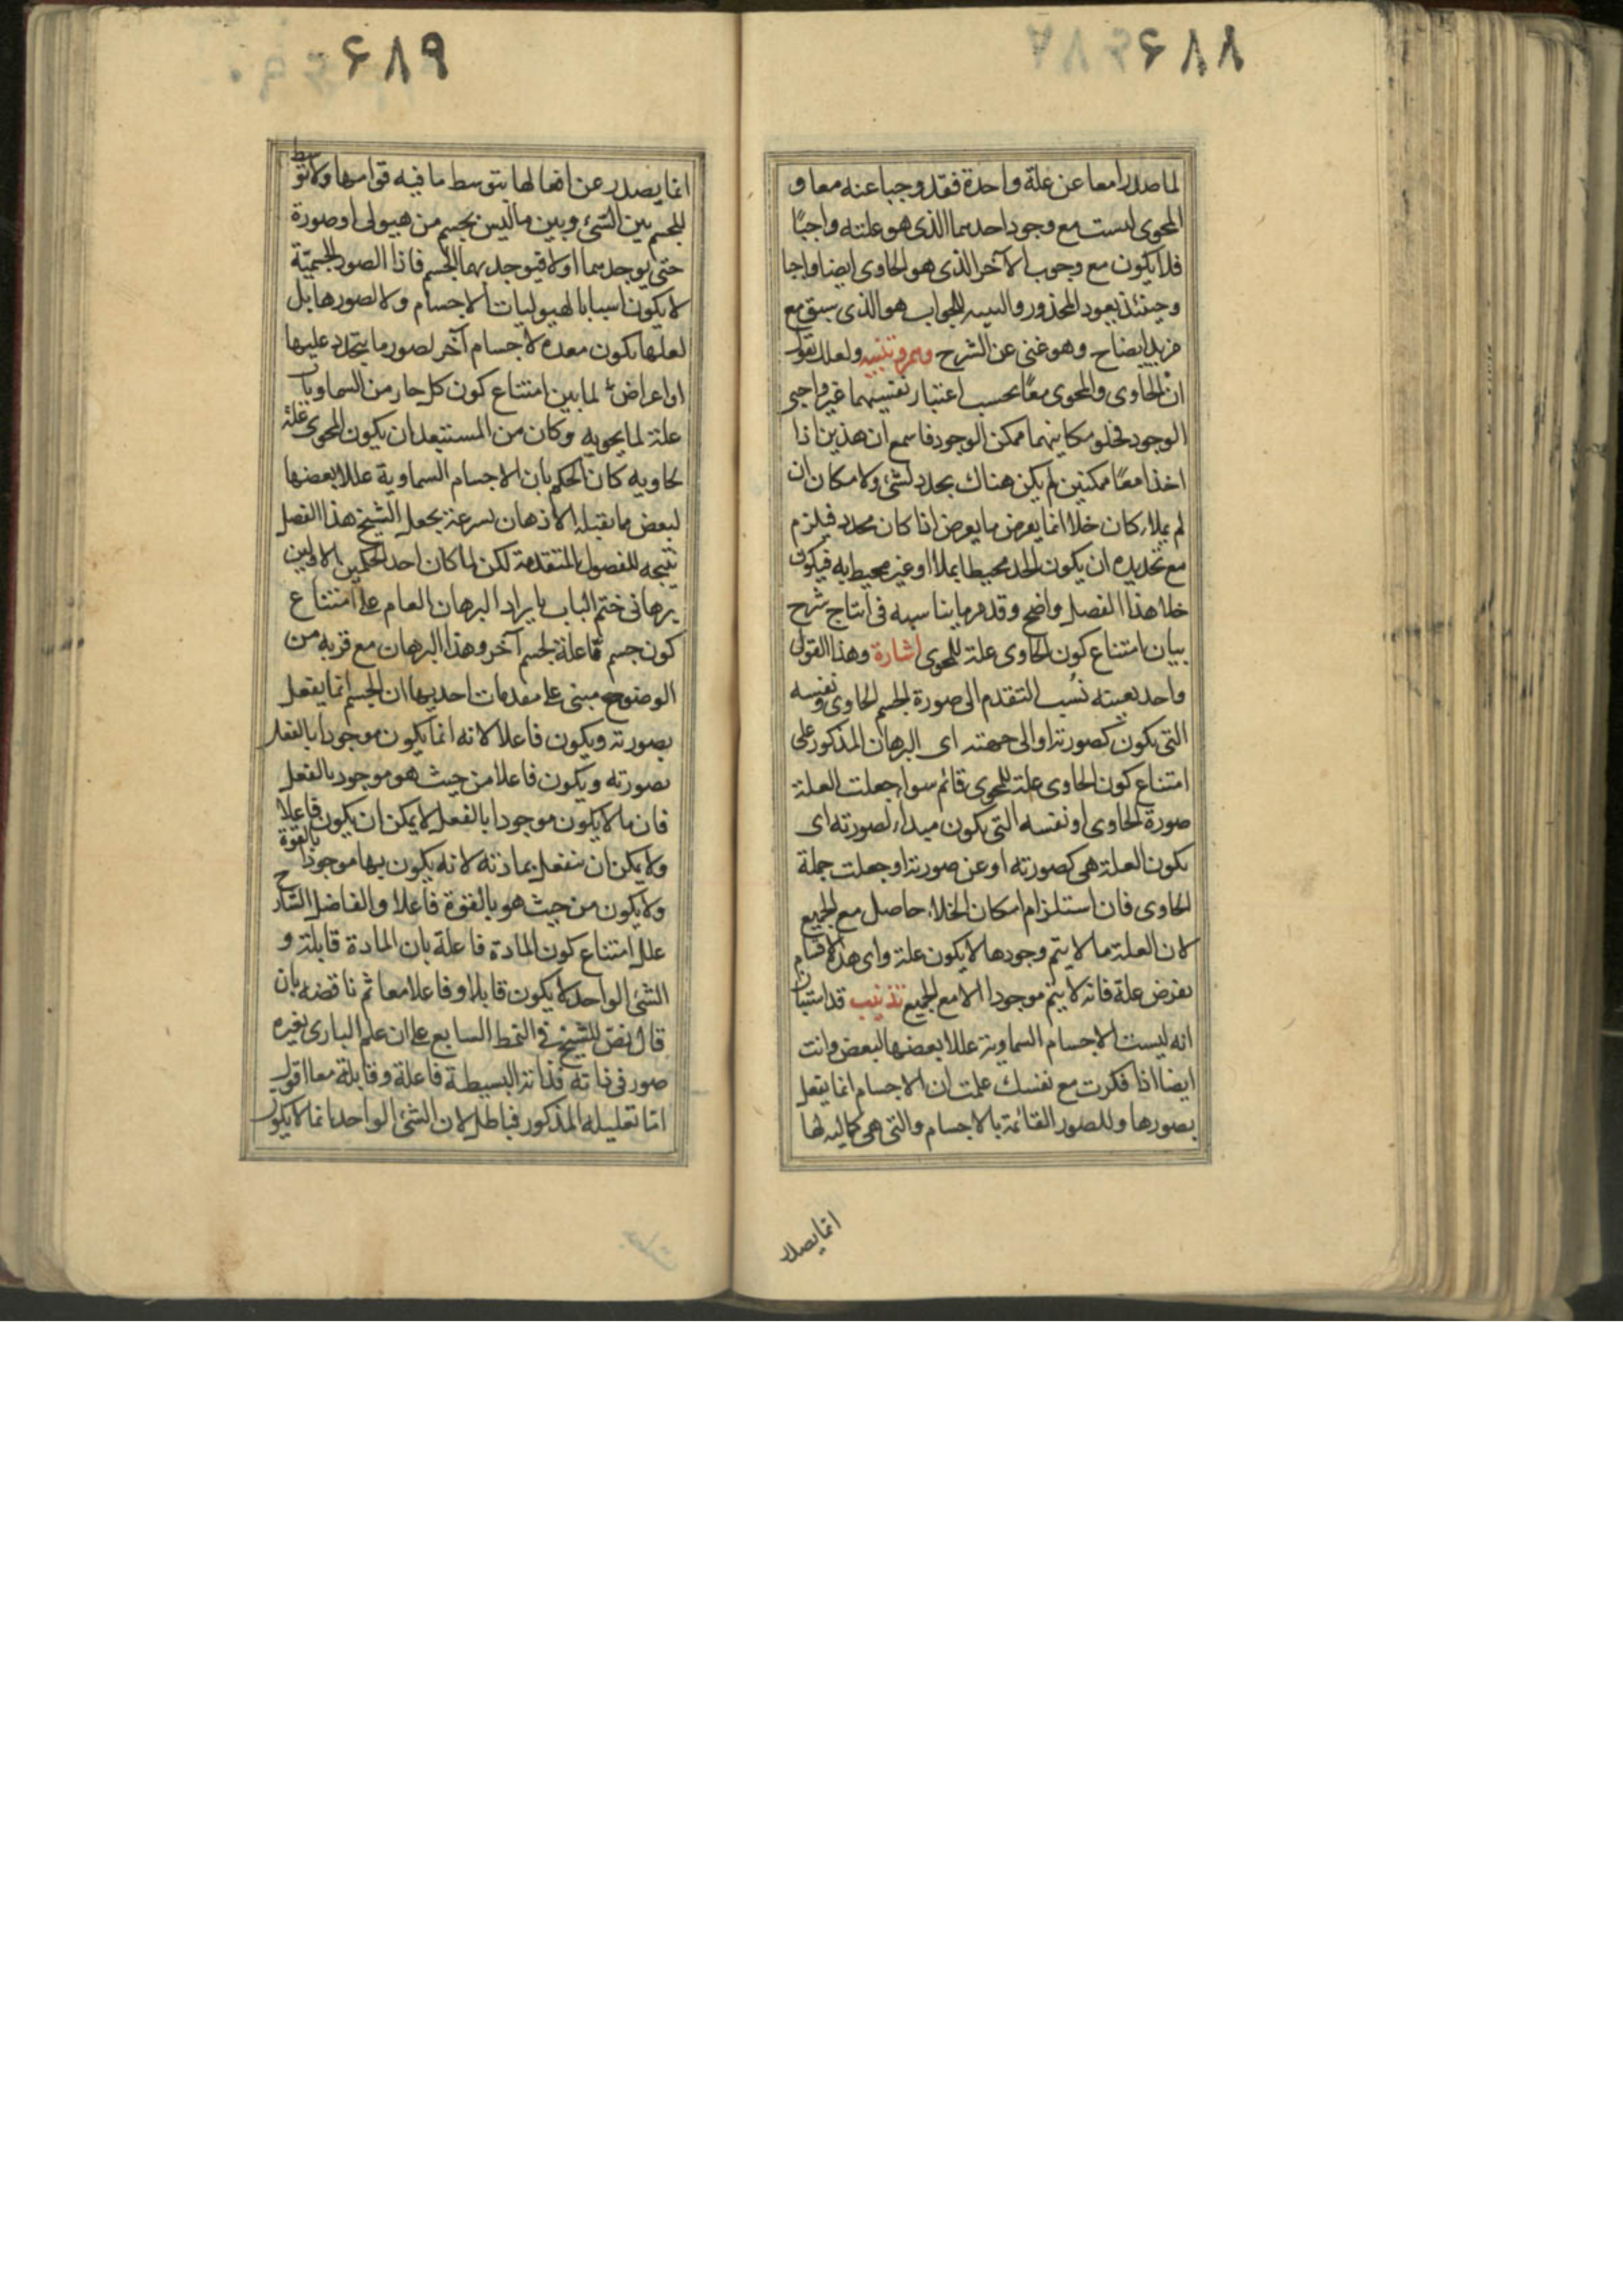 ۶۸۸
لما صدرا معا عن علة واحدة فقد وجبا عنه معا و
المحوى ليست مع وجود احدهما الذى هو علته واجبًا
فلا يكون مع وجوب الآخر الذى هو الحاوى ايضا واجبا
وحينئذ يعود المحذور والتنبيه للجواب هو الذى سبق مع
مزيد ايضاح وهو غنى عن الشرح وهم و تنبيه ولعلك تقول
ان الحاوى والمحوى معًا بحسب اعتبار نفسيهما غير واجبى
الوجود فخلو مكانيهما ممكن الوجود فاسمع ان هذين اذا
اخذا معًا ممكنين لم يكن هناك تحدد لشئ ولا مكان ان
لم يملاء كان خلاء انما يعرض ما يعرض اذا كان محدد فيلزم
مع تحديده ان يكون الحد محيطا بملاء او غير محيط به فيكون
خلاء هذا الفصل واضح وقد مر ما يناسبه فى انتاج شرح
بيان امتناع كون الحاوى علة للمحوى اشارة وهذا القول
واحد بعينه نُسب التقدم الى صورة الجسم الحاوى ونفسه
التى يكون كصورته او الى جملته اى البرهان المذكور على
امتناع كون الحاوى علة للمحوى قائم سواء جعلت العلة
صورة الحاوى او نفسه التى يكون مبداء لصورته اى
يكون العلة هى كصورته او عن صورته او جعلت جملة
الحاوى فان استلزام امكان الخلاء حاصل مع الجميع
لان العلة ما لا يتم وجودها لا يكون علة واى هذه الاقسام
يفرض علة فانه لا يتم موجودا الا مع الجميع تذنيب قد استبان
انه ليست الاجسام السماوية عللا بعضها لبعض وانت
ايضا اذا فكرت مع نفسك علمت ان الاجسام انما يفعل
بصورها وللصور القائمة بالاجسام والتى هى كمالية لها
انما يصدر
۶۸۹
انما يصدر عن افعالها بتوسط ما فيه قوامها ولا توسط
للجسم بين الشئ وبين ما ليس بجسم من هيولى او صورة
حتى يوجدهما اولا فيوجد بهما الجسم فاذا الصور الجسميّة
لا يكون اسبابا لهيوليات الاجسام ولا لصورها بل
لعلها يكون معدة لاجسام آخر لصور ما يتجدد عليها
او اعراض لما بين امتناع كون كل حار من السماويات
علة لما يحويه وكان من المستبعد ان يكون المحوى علة
لحاويه كان الحكم بان الاجسام السماوية عللا بعضها
لبعض ما يقبله الاذهان بسرعة يجعل الشيخ هذا الفصل
نتيجه للفصول المتقدمة لكن لما كان احد الحكمين الاولين
برهانى ختم الباب بايراد البرهان العام على امتناع
كون جسم ما علة لجسم آخر وهذا البرهان مع قربه من
الوضوح مبنى على مقدمات احديها ان الجسم انما يفعل
بصورته ويكون فاعلا لانه انما يكون موجودا بالفعل
بصورته ويكون فاعلا من حيث هو موجود بالفعل
فان ما لا يكون موجودا بالفعل لا يمكن ان يكون فاعلا
ولا يمكن ان ينفعل بمادته لانه يكون بها موجودا بالقوة
ولا يكون من حيث هو بالقوة فاعلا والفاضل الشارح
علل امتناع كون المادة فاعلة بان المادة قابلة و
الشئ الواحد لا يكون قابلا وفاعلا معا ثم ناقضه بان
قال نصّ للشيخ فى النمط السابع على ان علم البارى بغيره
صور فى ذاته فذاته البسيطة فاعلة وقابلة معا اقول
امّا تعليله المذكور فباطل لان الشئ الواحد انما لا يكون